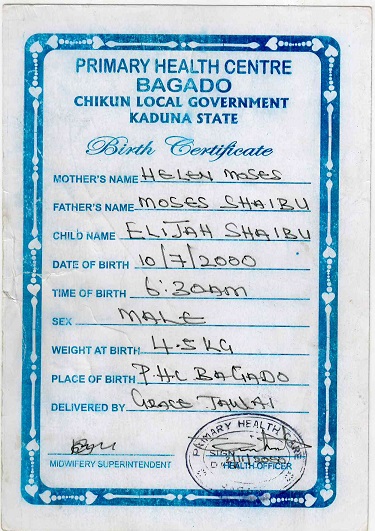 PRIMARY HEALTH CENTRE
BAGADO
CHIKUN LOCAL GOVERNMENT
KADUNA STATE
Birth Certificate
MOTHER'S NAME HELEN MOSES
FATHER'S NAME MOSES SHAIBU
CHILD NAME ELIJAH SHAIBU
DATE OF BIRTH 10/7/2000
TIME OF BIRTH 6:30AM
SEX MALE
WEIGHT AT BIRTH 4.5KG
PLACE OF BIRTH PHC BAGADO
DELIVERED BY GRACE TAWAI
PRIMARY HEALTH CARE
SIGN
MIDWIFERY SUPERINTENDENT HEALTH OFFICER